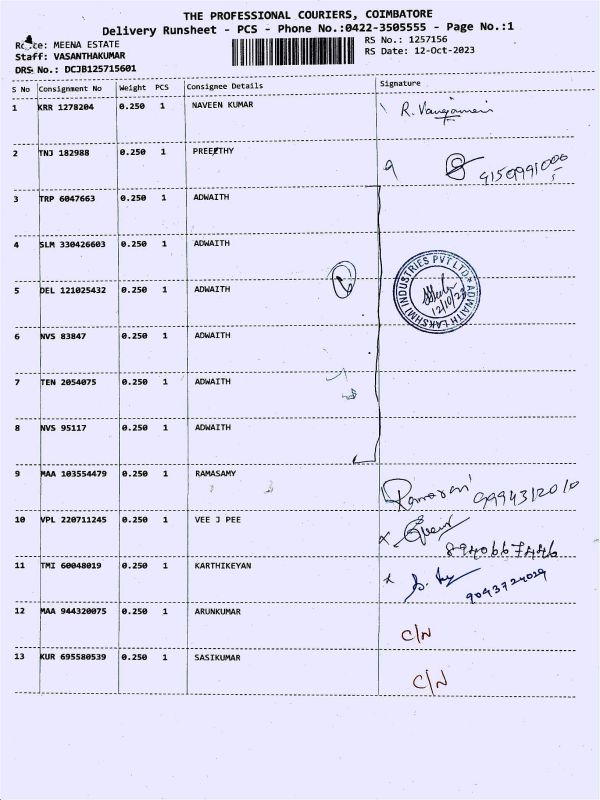 THE PROFESSIONAL COURIERS, COIMBATORE
Delivery Runsheet - PCS - Phone No.:0422-3505555 - Page No.:1
MEENA ESTATE
RS No.: 1257156
Staff: VASANTHAKUMAR
RS Date: 12-Oct-2023
DRS No.: DCJB125715601
S No Consignment No Weight PCS Consignee Details Signature
1 KRR 1278204 0.250 1 NAVEEN KUMAR
2 TNJ 182988 0.250 1 PREETHY
9150991000
3 TRP 6047663 0.250 1 ADWAITH
4 SLM 330426603 0.250 1 ADWAITH
5 DEL 121025432 0.250 1 ADWAITH
ADWAITH LAKSHMI INDUSTRIES PVT LTD
12/10/23
6 NVS 83847 0.250 1 ADWAITH
7 TEN 2054075 0.250 1 ADWAITH
8 NVS 95117 0.250 1 ADWAITH
9 MAA 103554479 0.250 1 RAMASAMY
9994312010
10 VPL 220711245 0.250 1 VEE J PEE
8940667446
11 TMI 60048019 0.250 1 KARTHIKEYAN
9043724029
12 MAA 944320075 0.250 1 ARUNKUMAR C/N
13 KUR 695580539 0.250 1 SASIKUMAR C/N